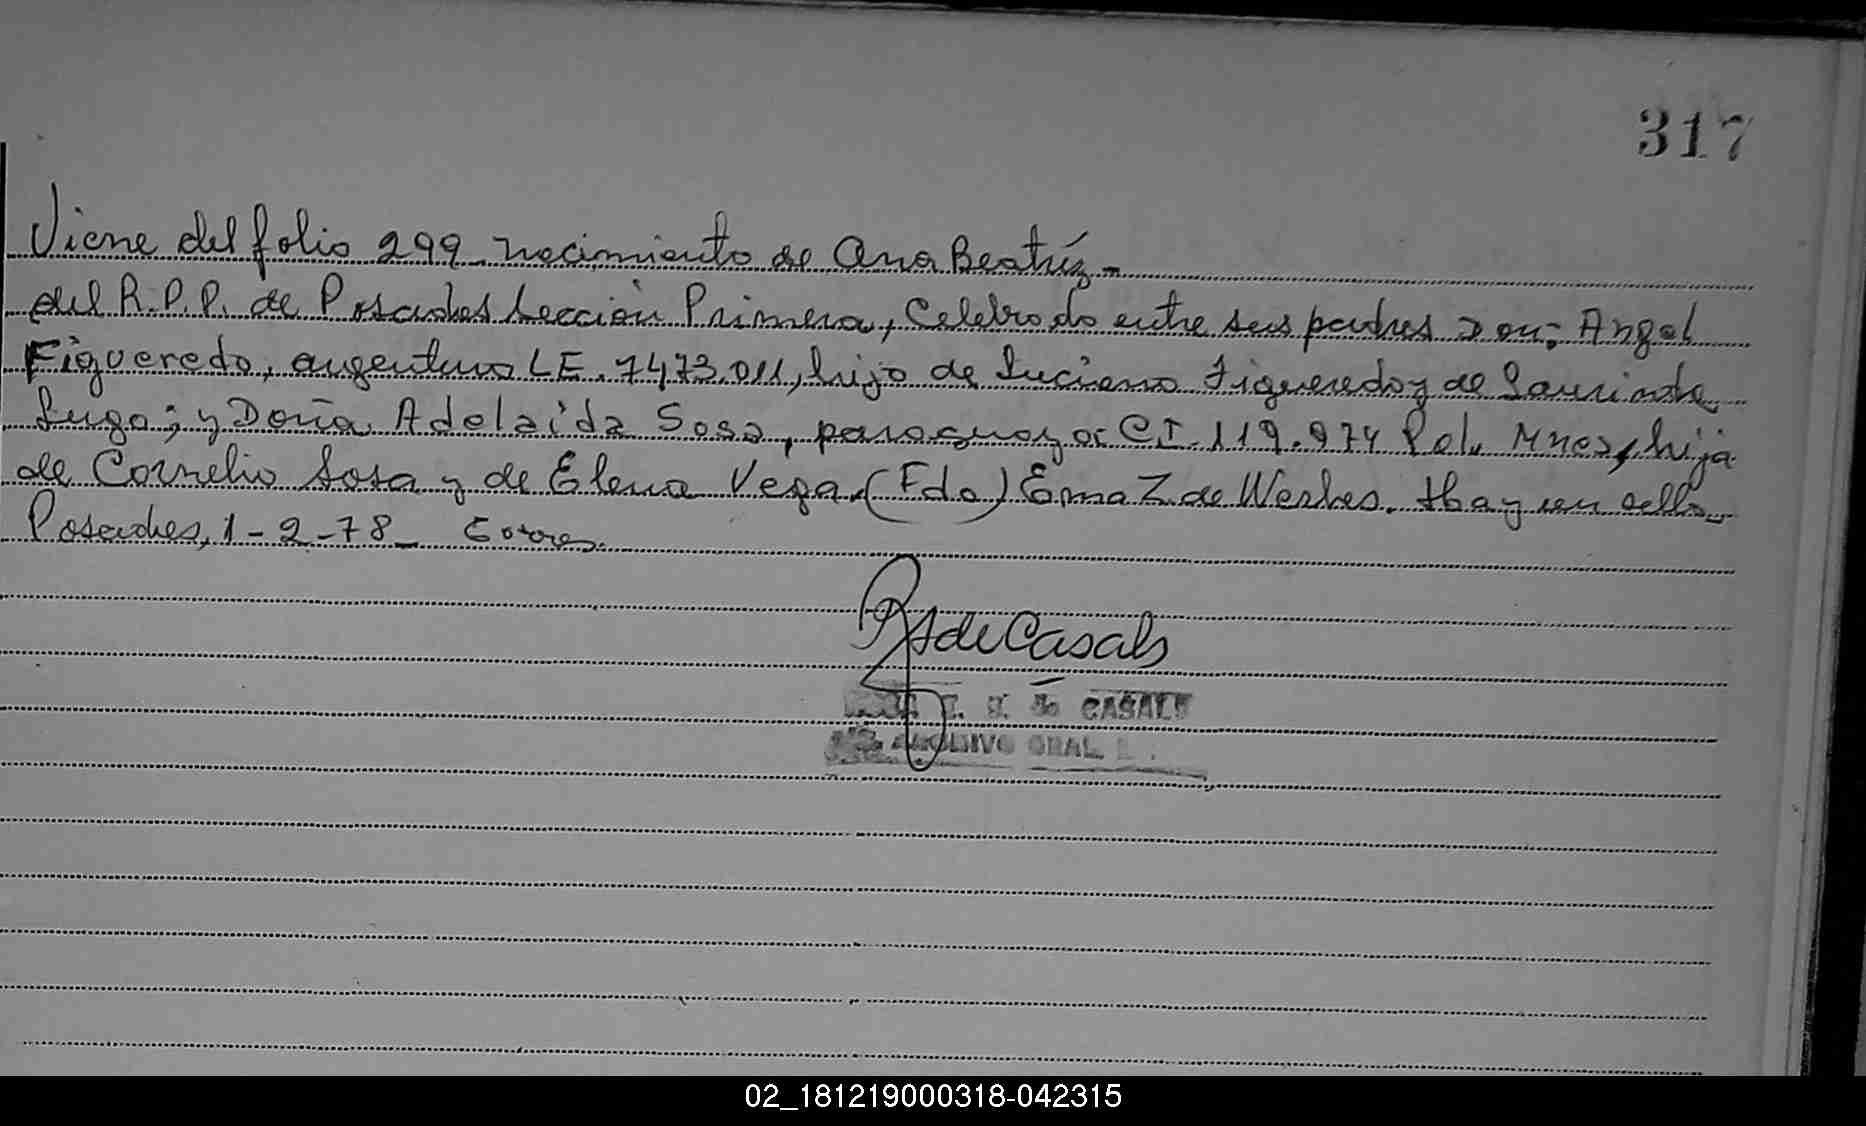 317
Viene del folio 299 nacimiento de Ana Beatríz-
del R.P.P. de Posadas Sección Primera, Celebrado entre sus padres Don: Angel
Figueredo, argentino LE. 7473.011, hijo de Luciano Figueredo y de Laurinda
Lugo; y Doña Adelaida Sosa, paraguaya CI. 119.974 Pol. Mnes, hija
de Cornelio Sosa y de Elena Vega. (Fdo) Ema Z de Werbes. Hay un sello.
Posadas, 1-2-78_
A de Casals
de CASALS
ARCHIVO GRAL
02_181219000318-042315